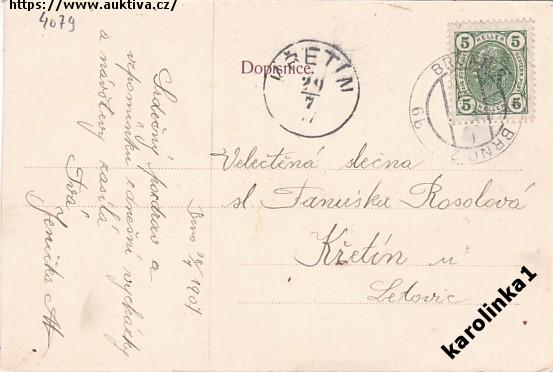 https://www.auktiva.cz/
4079
Dopisnice.
KŘETÍN
29
7
5 HELLER 5
5 5
BRÜNN 2
BRNO 2
6b
Srdečný pozdrav a
vzpomínku z dnešní vycházky
a návštěvy zasílá
Tvá
Jenička
Brno 28/7 1907.
Velectěná slečna
sl. Fanuška Rosolová
Křetín u
Letovic
karolinka1